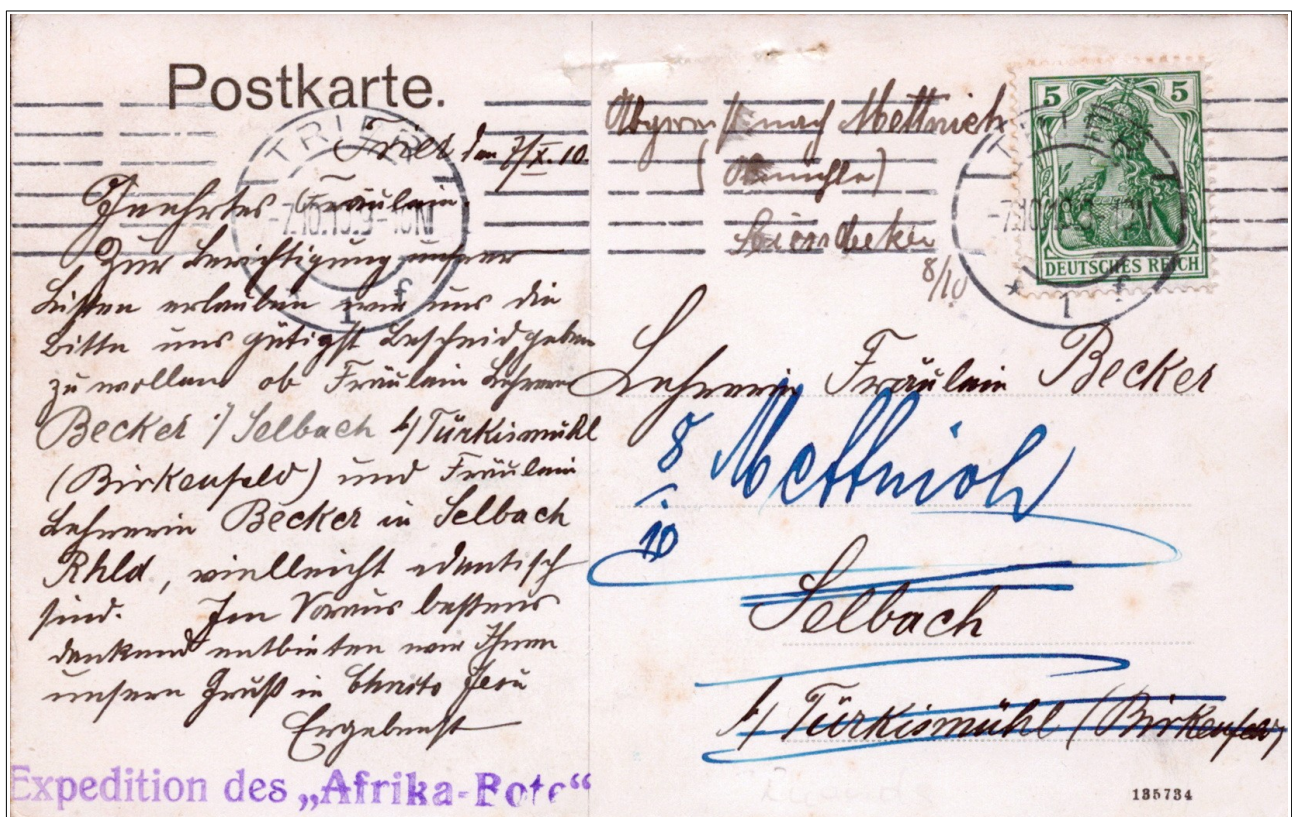 Postkarte.
Trier den 7/X. 10.
Geehrtes Fräulein.
Zur Berichtigung unserer
Listen erlauben wir uns die
Bitte uns gütigst Bescheid geben
zu wollen ob Fräulein Lehrerin
Becker i/ Selbach b/ Türkismühl
(Birkenfeld) und Fräulein
Lehrerin Becker in Selbach
Rhld, vielleicht identisch
sind. Im Voraus bestens
dankend entbieten wir Ihnen
unsern Gruß in Christo Jesu
Ergebenst
Expedition des „Afrika-Bote“
nach Mettnich
8/10
TRIER
-7.10.10.9-10N
1 f
5 5
DEUTSCHES REICH
Lehrerin Fräulein Becker
8/10 Mettnich
Selbach
b/ Türkismühl (Birkenfeld)
135734